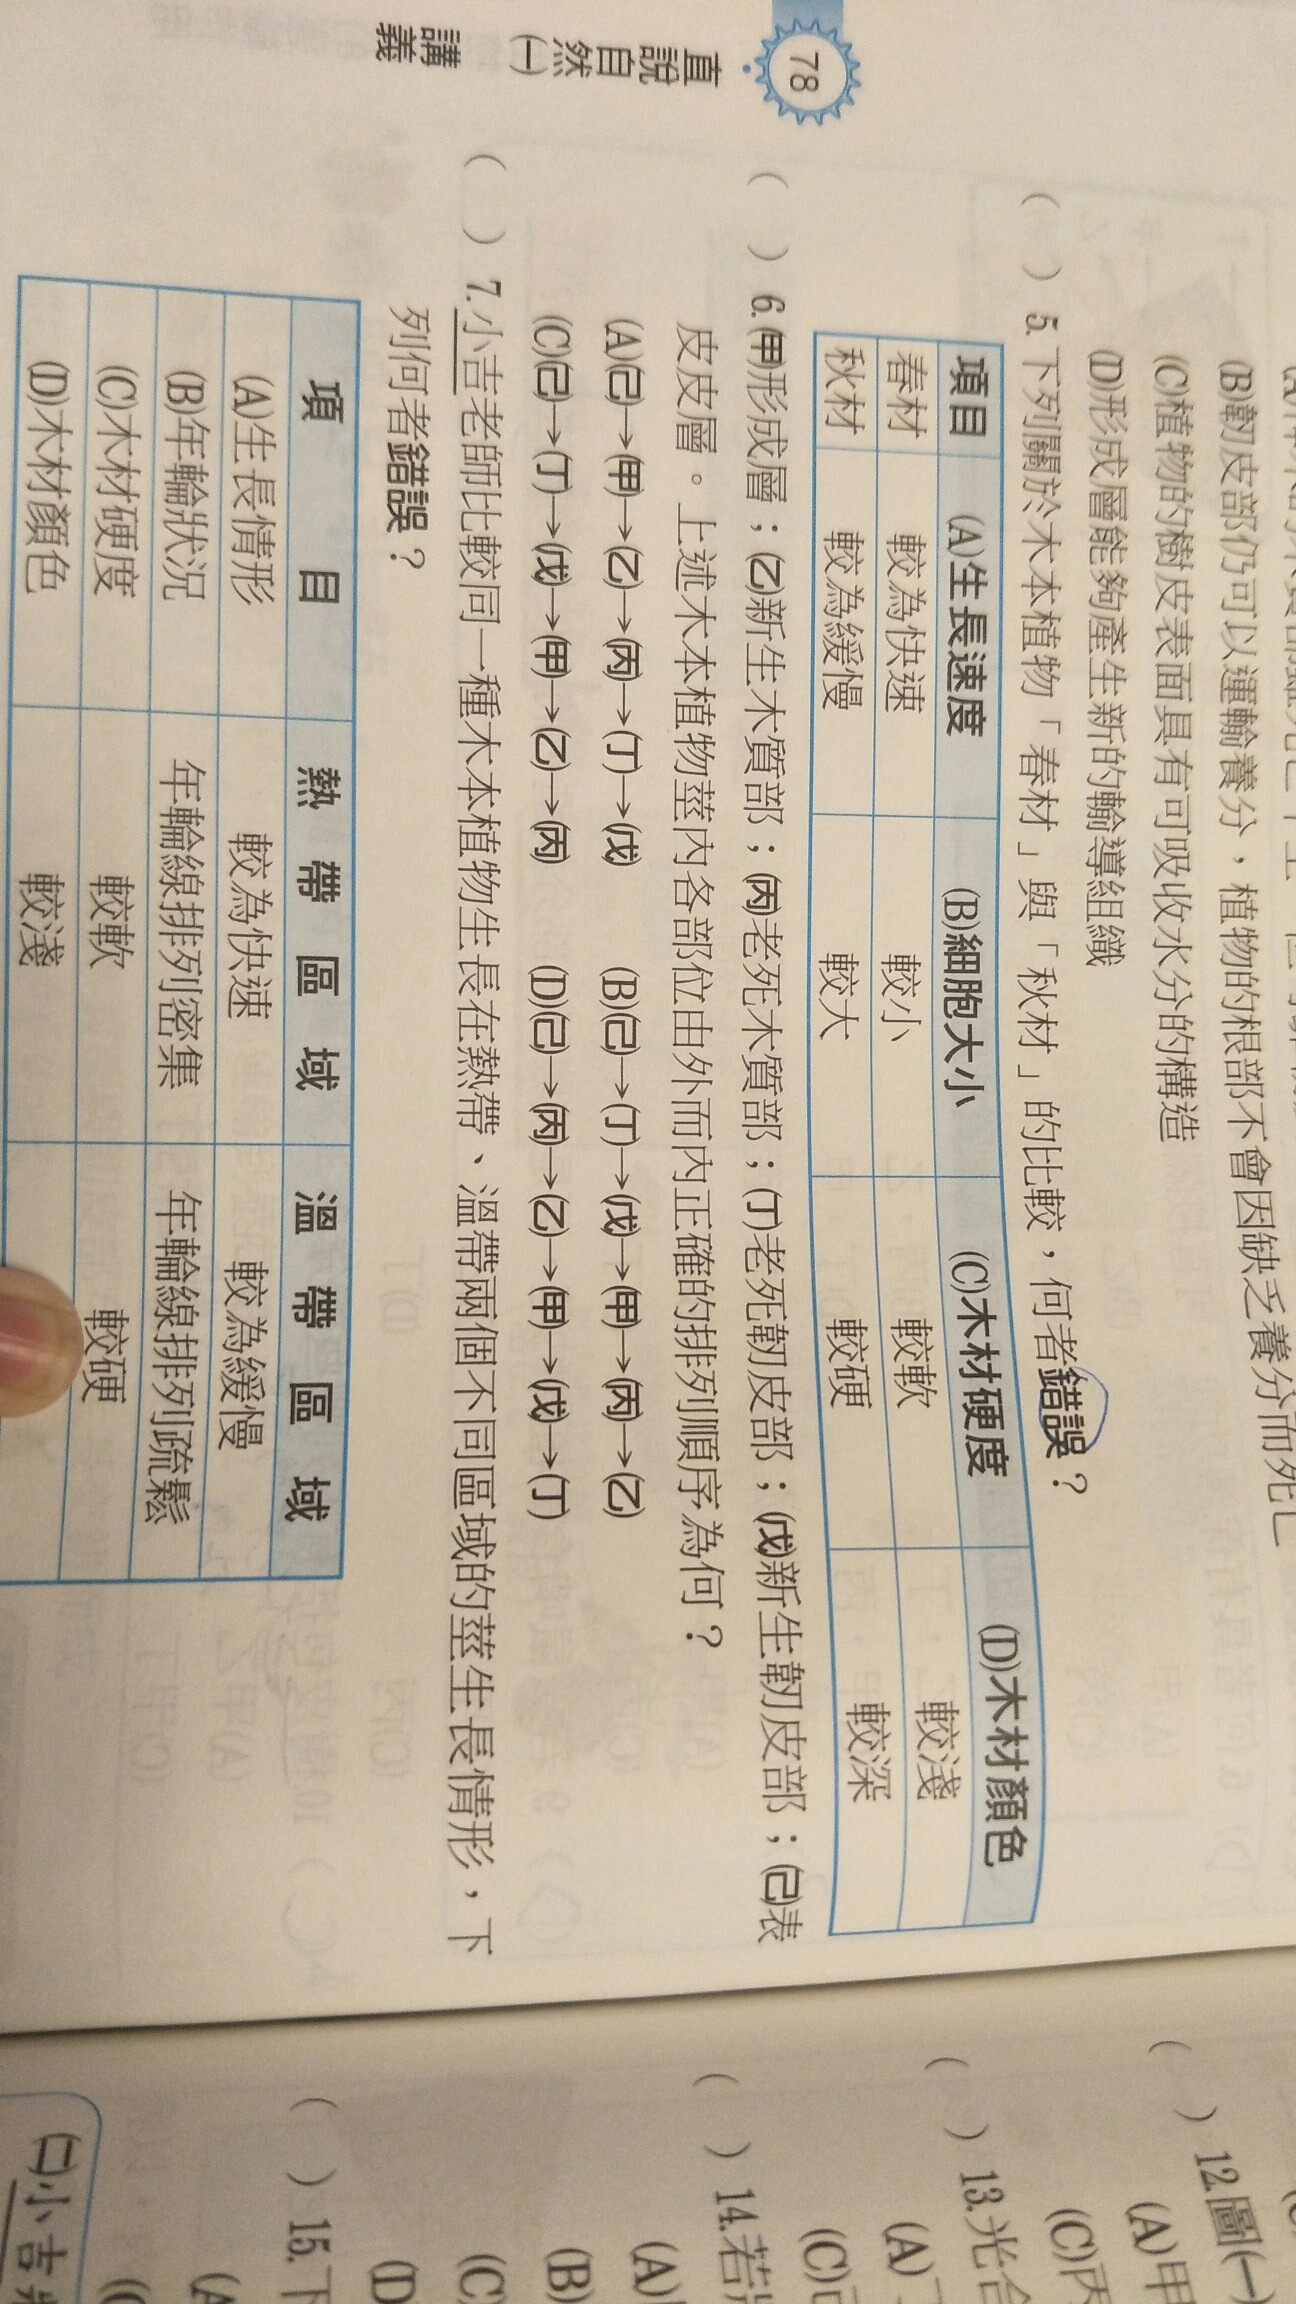 (B)韌皮部仍可以運輸養分，植物的根部不會因缺乏養分而死亡
(C)植物的樹皮表面具有可吸收水分的構造
(D)形成層能夠產生新的輸導組織
( ) 5.下列關於木本植物「春材」與「秋材」的比較，何者錯誤？
項目 (A)生長速度 (B)細胞大小 (C)木材硬度 (D)木材顏色
春材 較為快速 較小 較軟 較淺
秋材 較為緩慢 較大 較硬 較深
( ) 6.(甲)形成層；(乙)新生木質部；(丙)老死木質部；(丁)老死韌皮部；(戊)新生韌皮部；(己)表
皮皮層。上述木本植物莖內各部位由外而內正確的排列順序為何？
(A)(己)→(甲)→(乙)→(丙)→(丁)→(戊) (B)(己)→(丁)→(戊)→(甲)→(丙)→(乙)
(C)(己)→(丁)→(戊)→(甲)→(乙)→(丙) (D)(己)→(丙)→(乙)→(甲)→(戊)→(丁)
( ) 7.小吉老師比較同一種木本植物生長在熱帶、溫帶兩個不同區域的莖生長情形，下
列何者錯誤？
項目 熱帶區域 溫帶區域
(A)生長情形 較為快速 較為緩慢
(B)年輪狀況 年輪線排列密集 年輪線排列疏鬆
(C)木材硬度 較軟 較硬
(D)木材顏色 較淺
78
直說自然(一)講義
( ) 12.圖(一)
(A)甲
(C)丙
( ) 13.光合
(A)
(C)
( ) 14.若
(A)
(B)
(C)
(D)
( ) 15.下
(A)
(C)
小吉